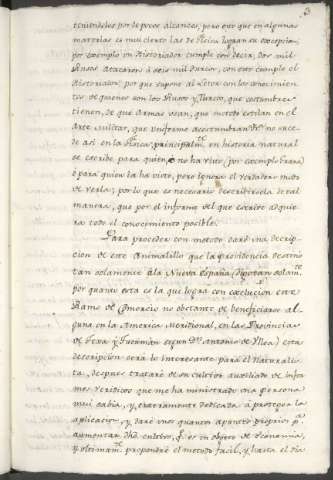 3
tenidoles por de pocos alcances, pero creo que en algunas
materias es mui cierto las de fisica logran su excepcion,
por exemplo un Historiador cumple con decir, dos mil
Rusos atacaron à seis mil Turcos, con esto cumple el
Historiador por que supone al Letor con los conocimien
tos de quienes son los Rusos y Turcos, que costumbres
tienen, de que Armas usan, que metodo establan en el
Arte Militar, que uniforme acostumbran &ca. no suce
de asi en la fisica, principalmte. en historia natural
se escribe para quien no ha visto (por exemplo Grana)
ò para quien la ha visto, pero ignora el verdadero modo
de verla; por lo que es necesario describirsela de tal
manera, que por el informe del que escribe adquie
ra todo el conocimiento posible.
Para proceder con metodo daré una descrip
cion de este Animalillo que la Providencia destinò
tan solamente à la Nueva España (digo tan solamte.
por quanto esta es la que logra con exclucion este
Ramo de Comercio no obstante de beneficiarse al
guna en la America Meridional, en las Provincias
de Loxa, y Tucuman segun Dn. Antonio de Ulloa) esta
descripcion será lo interesante para el Naturalis
ta, despues trataré de su cultivo auxiliado de infor
mes veridicos que me ha ministrado una persona
mui sabia, y enteramente dedicada à proteger la
aplicacion, y daré unos quantos apuntes propios pa.
aumentar dho cultivo, qe. es un objeto de economia,
y ultimamte. propondré el metodo facil, y hasta el dia